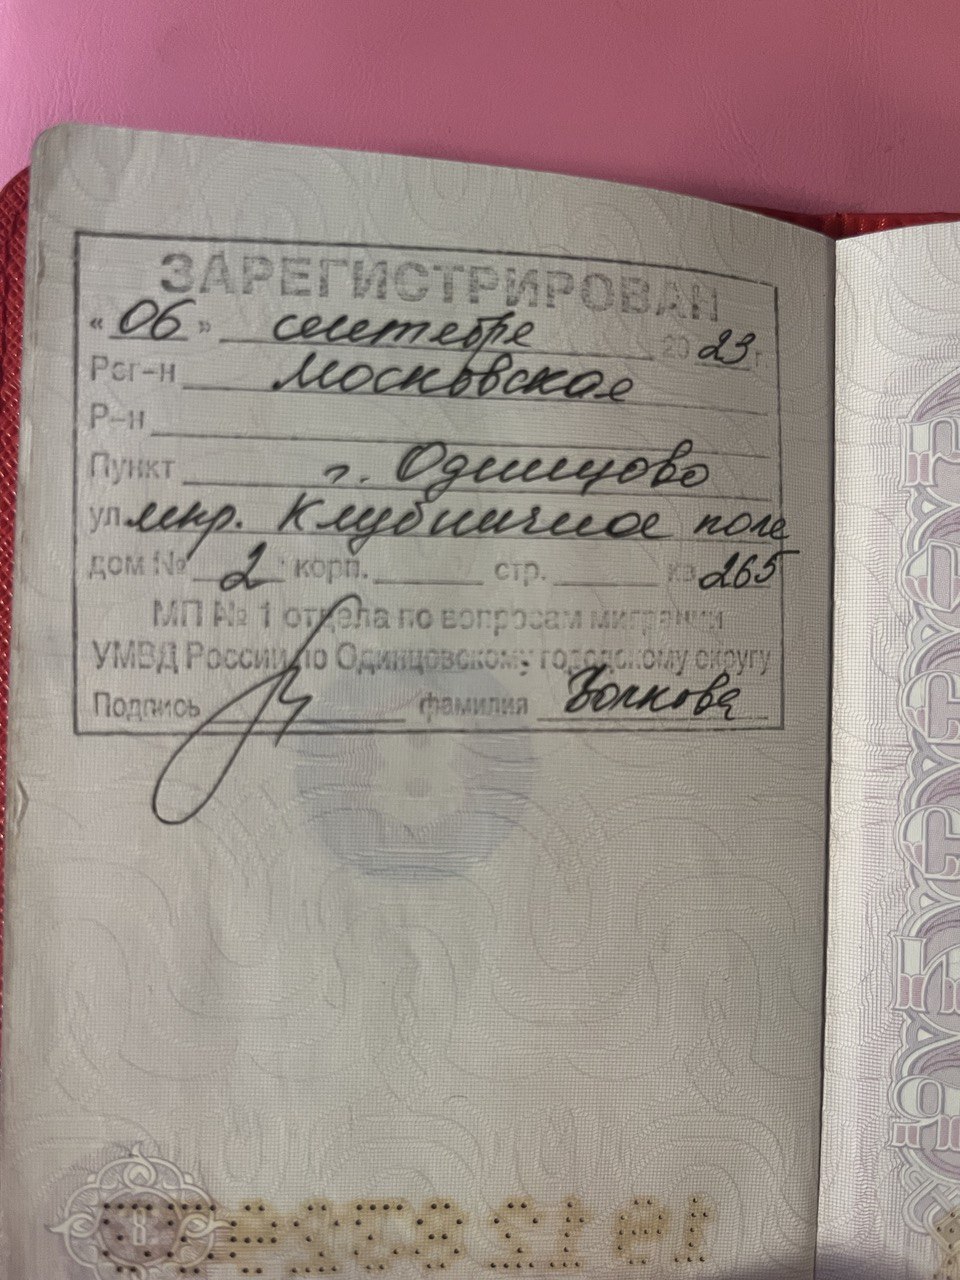 ЗАРЕГИСТРИРОВАН
« 06 » сентября 20 23 г
Рег-н Московская
Р-н
Пункт г. Одинцово
ул мкр. Клубничное поле
дом № 2 корп. стр. кв 265
МП № 1 отдела по вопросам миграции
УМВД России по Одинцовскому городскому округу
Подпись фамилия Волкова